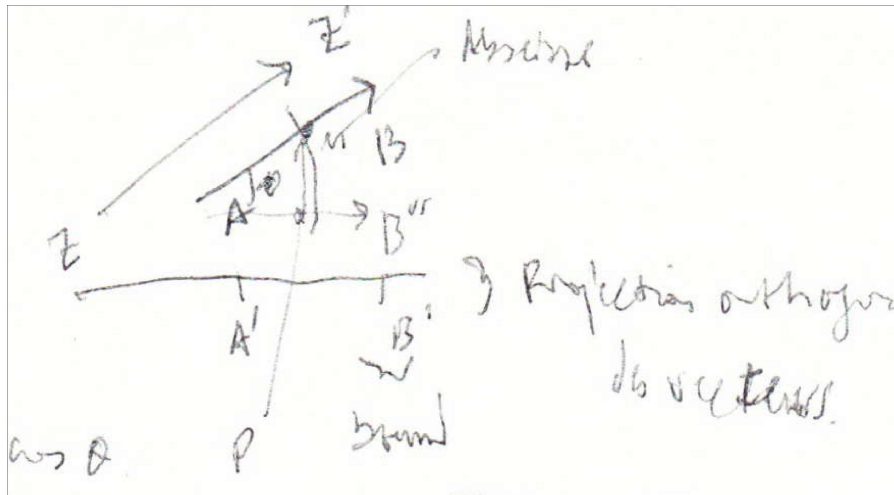 Z'
Abscisse
M
B
θ
A
B''
Z
A'
B'
} Projection orthogon
des vecteurs.
cos θ
P